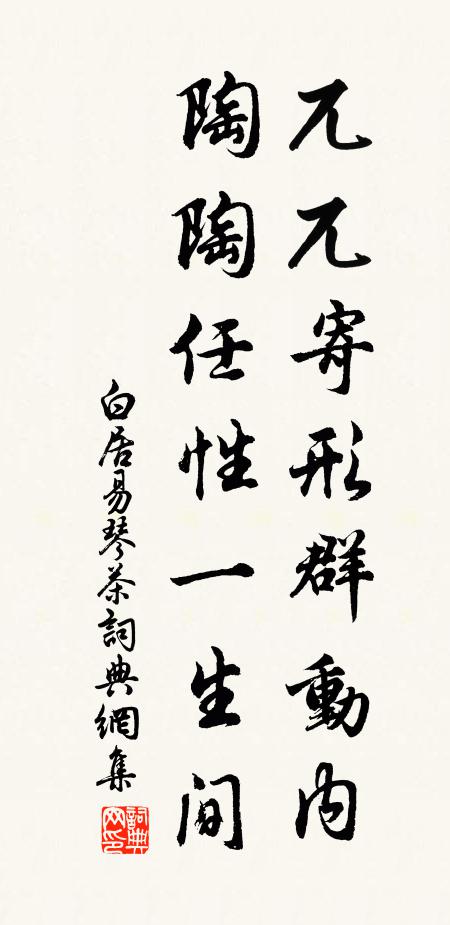 兀兀寄形群動內
陶陶任性一生間
白居易琴茶詞典網集
詞典網印